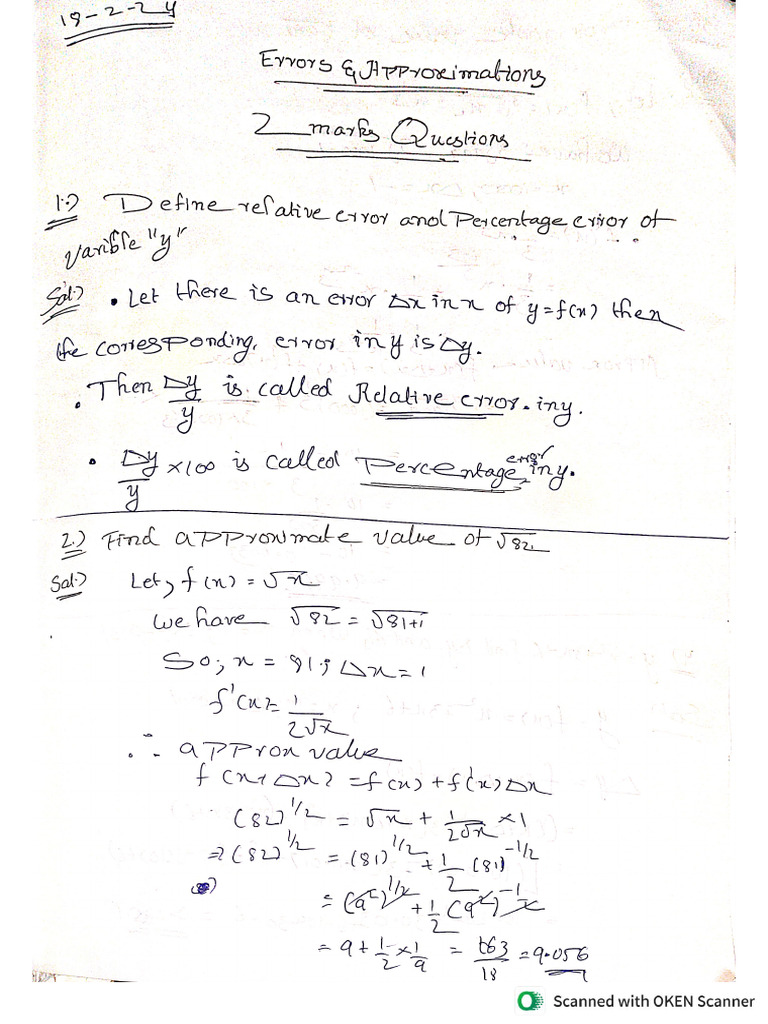 19-2-24
Errors & Approximations
2 marks Questions
1.) Define relative error and Percentage error of
varible "y"
Sol:) • Let there is an error Δx in x of y=f(x) then
the corresponding, error in y is Δy.
• Then Δy/y is called Relative error. in y.
• Δy/y ×100 is called Percentage error in y.
2.) Find approximate value of √82.
Sol:) Let, f(x) = √x
we have √82 = √81+1
So; x = 81; Δx=1
f'(x)= 1/2√x
∴ approx value
f(x+Δx) = f(x) + f'(x) Δx
(82)^1/2 = √x + 1/2√x ×1
⇒ (82)^1/2 = (81)^1/2 + 1/2 (81)^-1/2
= (9²)^1/2 + 1/2 (9²)^-1/2
= 9 + 1/2 × 1/9 = 163/18 = 9.056
Scanned with OKEN Scanner